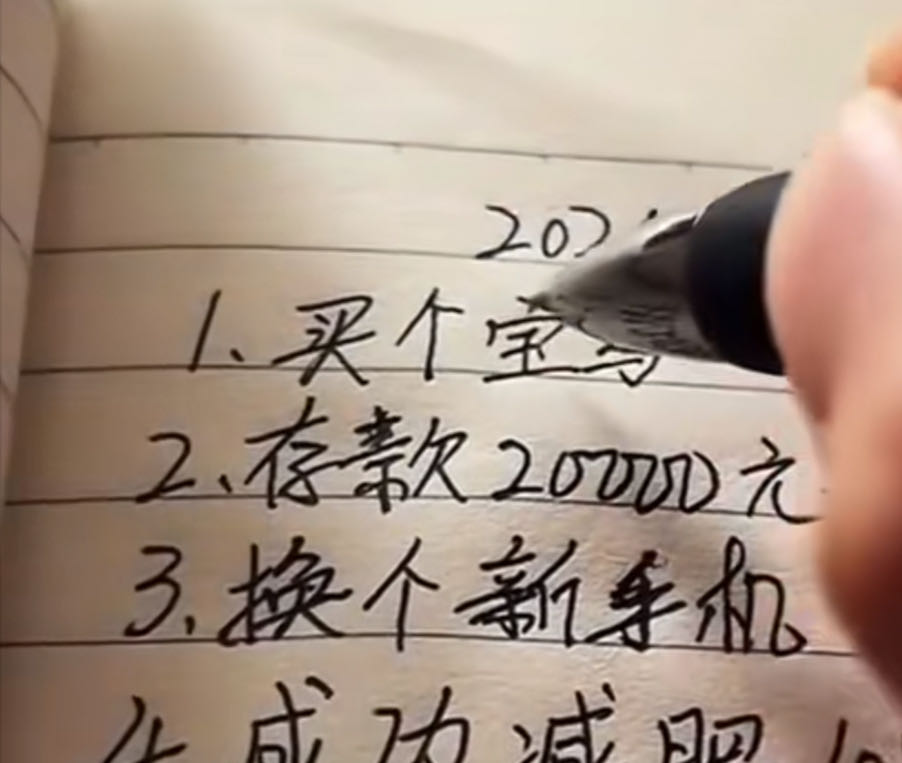 202
1、买个宝马
2、存款200000元
3、换个新手机
4、成功减肥10